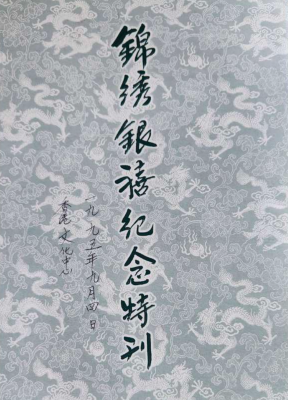 錦綉銀禧紀念特刊
一九九五年九月四日
香港文化中心